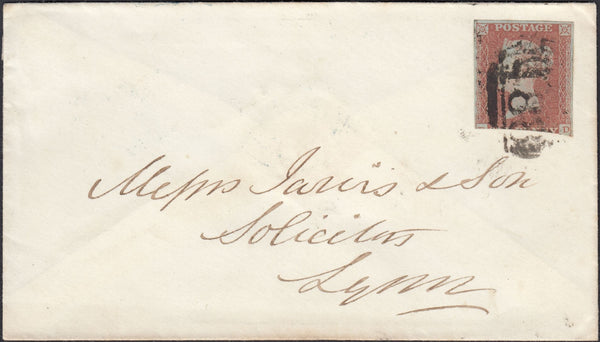 POSTAGE
Messrs Jarvis & Son
Solicitors
Lynn